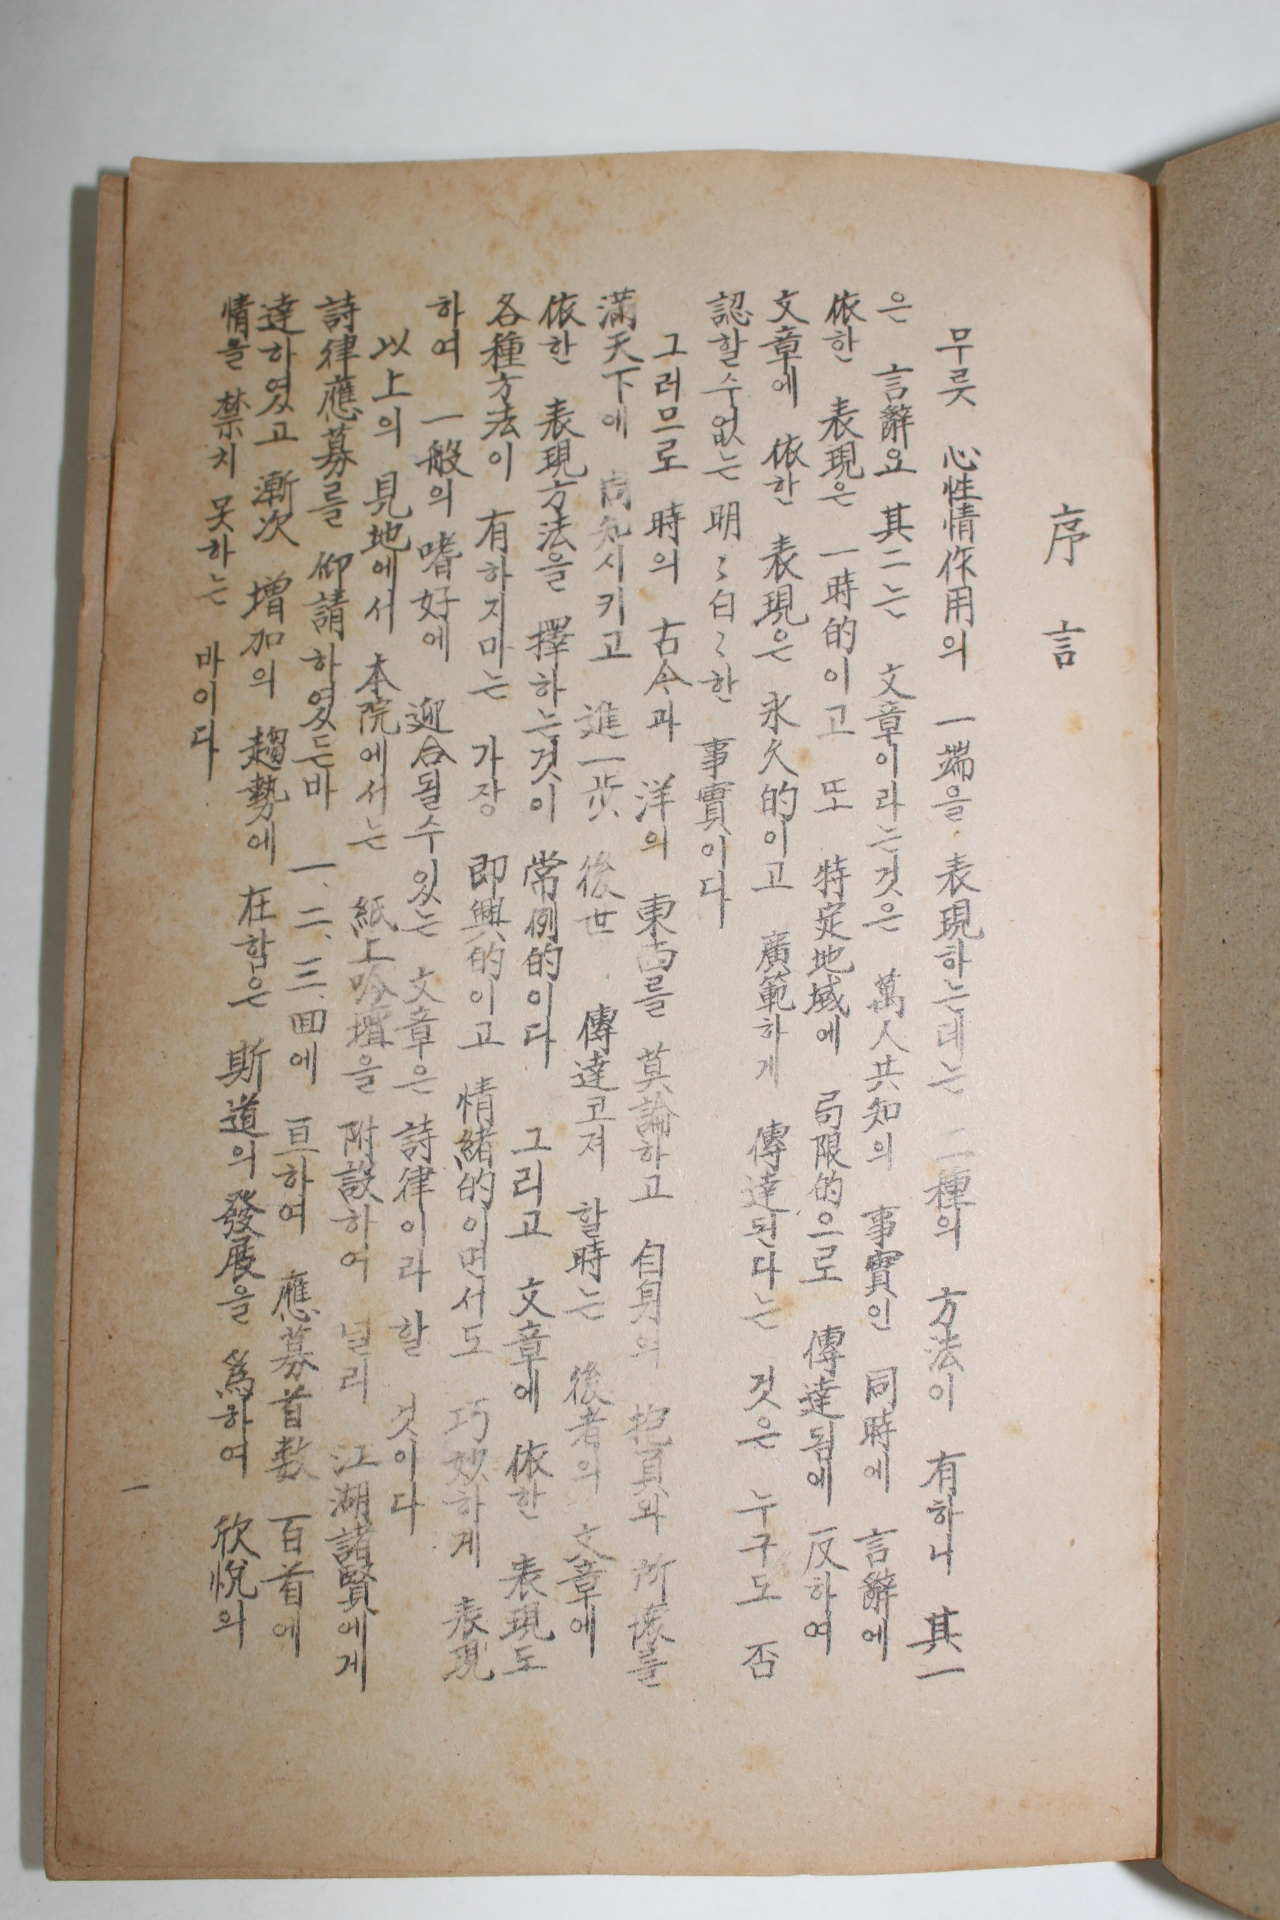 序言
무릇 心性情作用의 一端을 表現하는데는 二種의 方法이 有하니 其一
은 言辭요 其二는 文章이라는것은 萬人共知의 事實인 同時에 言辭에
依한 表現은 一時的이고 또 特定地域에 局限的으로 傳達됨에 反하여
文章에 依한 表現은 永久的이고 廣範하게 傳達된다는 것은 누구도 否
認할수없는 明〻白〻한 事實이다
그러므로 時의 古今과 洋의 東西를 莫論하고 自身의 抱負와 所懷를
滿天下에 周知시키고 進一步 後世 傳達고저 할時는 後者의 文章에
依한 表現方法을 擇하는것이 常例的이다 그리고 文章에 依한 表現도
各種方法이 有하지마는 가장 即興的이고 情緖的이면서도 巧妙하게 表現
하여 一般의 嗜好에 迎合될수있는 文章은 詩律이라 할 것이다
以上의 見地에서 本院에서는 紙上吟壇을 附設하여 널리 江湖諸賢에게
詩律應募를 仰請하였든바 一、二、三、回에 亘하여 應募首數 百首에
達하였고 漸次 增加의 趨勢에 在함은 斯道의 發展을 爲하여 欣悅의
情을 禁치 못하는 바이다
一